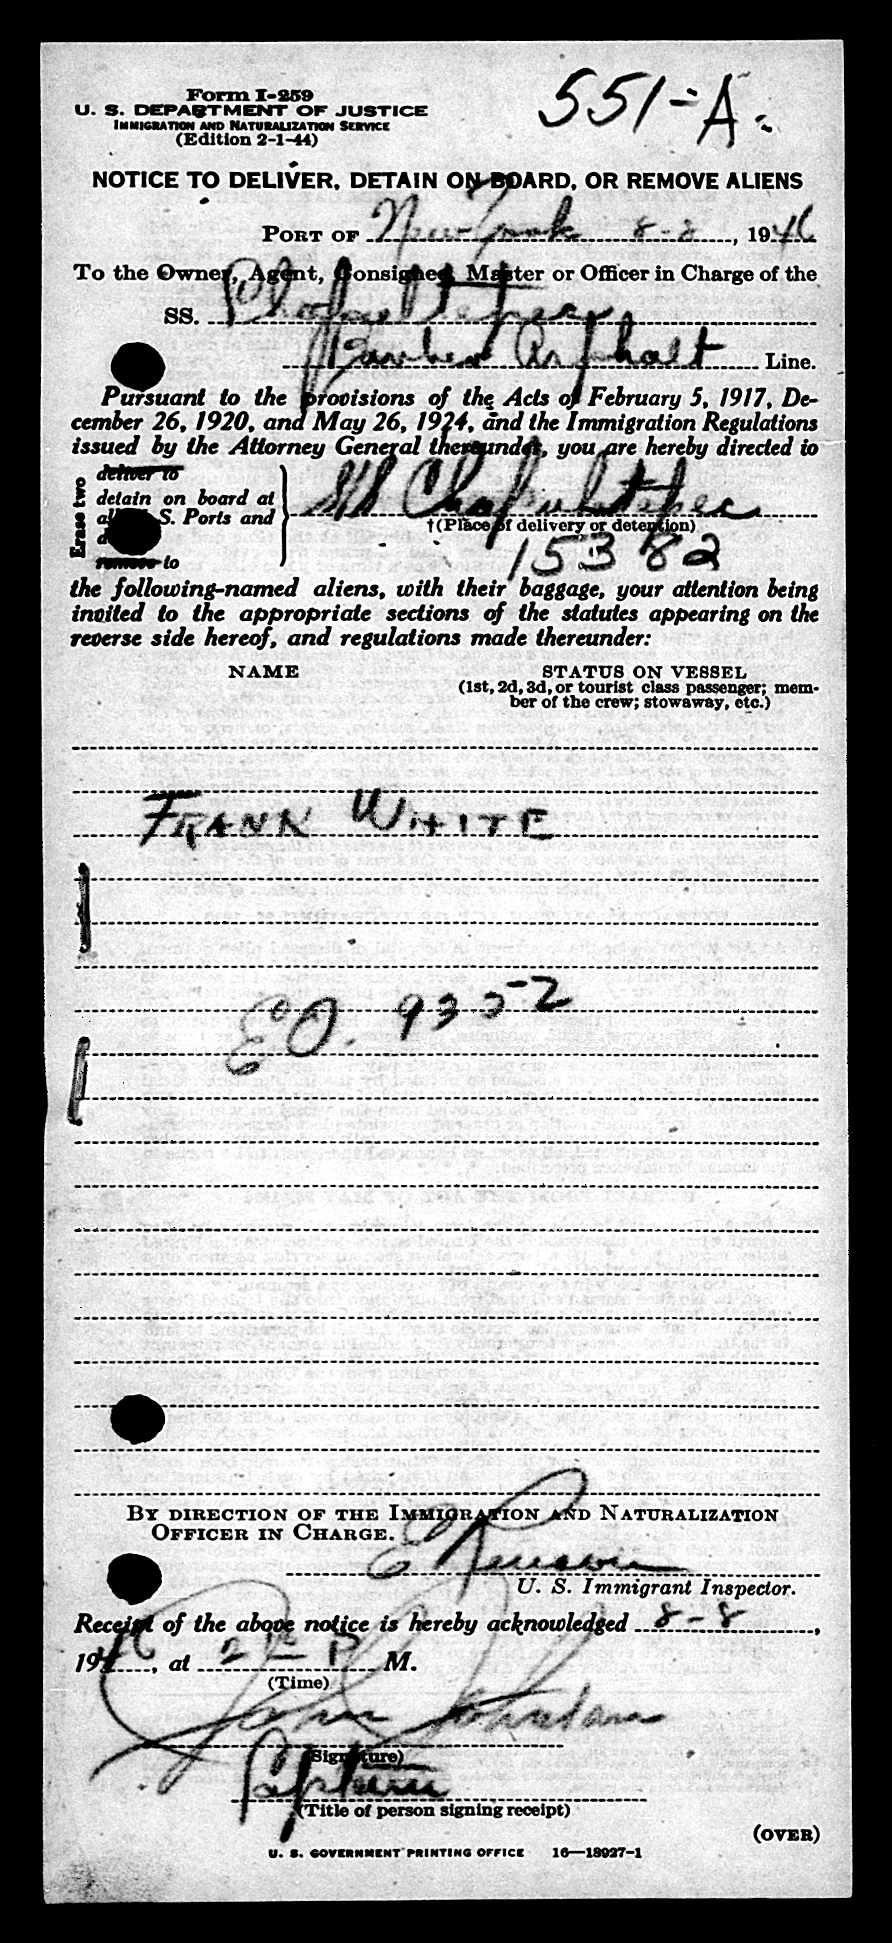 Form I-259
551-A.
U. S. DEPARTMENT OF JUSTICE
IMMIGRATION AND NATURALIZATION SERVICE
(Edition 2-1-44)
NOTICE TO DELIVER, DETAIN ON BOARD, OR REMOVE ALIENS
PORT OF New York 8-8, 1946
To the Owner, Agent, Consignee, Master or Officer in Charge of the
SS.
Barber Asphalt Line.
Pursuant to the provisions of the Acts of February 5, 1917, De-
cember 26, 1920, and May 26, 1924, and the Immigration Regulations
issued by the Attorney General thereunder, you are hereby directed to
Erase two
deliver to
detain on board at
S. Ports and
remove to
SS
†(Place of delivery or detention)
15382
the following-named aliens, with their baggage, your attention being
invited to the appropriate sections of the statutes appearing on the
reverse side hereof, and regulations made thereunder:
NAME STATUS ON VESSEL
(1st, 2d, 3d, or tourist class passenger; mem-
ber of the crew; stowaway, etc.)
FRANK WHITE
EO. 9352
BY DIRECTION OF THE IMMIGRATION AND NATURALIZATION
OFFICER IN CHARGE.
E
U. S. Immigrant Inspector.
Receipt of the above notice is hereby acknowledged 8-8,
1946, at 2 P M.
(Time)
John
(Signature)
Captain
(Title of person signing receipt)
(OVER)
U. S. GOVERNMENT PRINTING OFFICE 16—18927-1